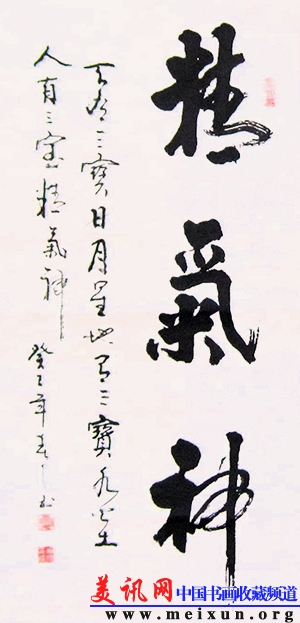 精氣神
天有三寶日月星地有三寶水火土
人有三宝精氣神
癸巳年春书
美讯网 中国书画收藏频道
www.meixun.org